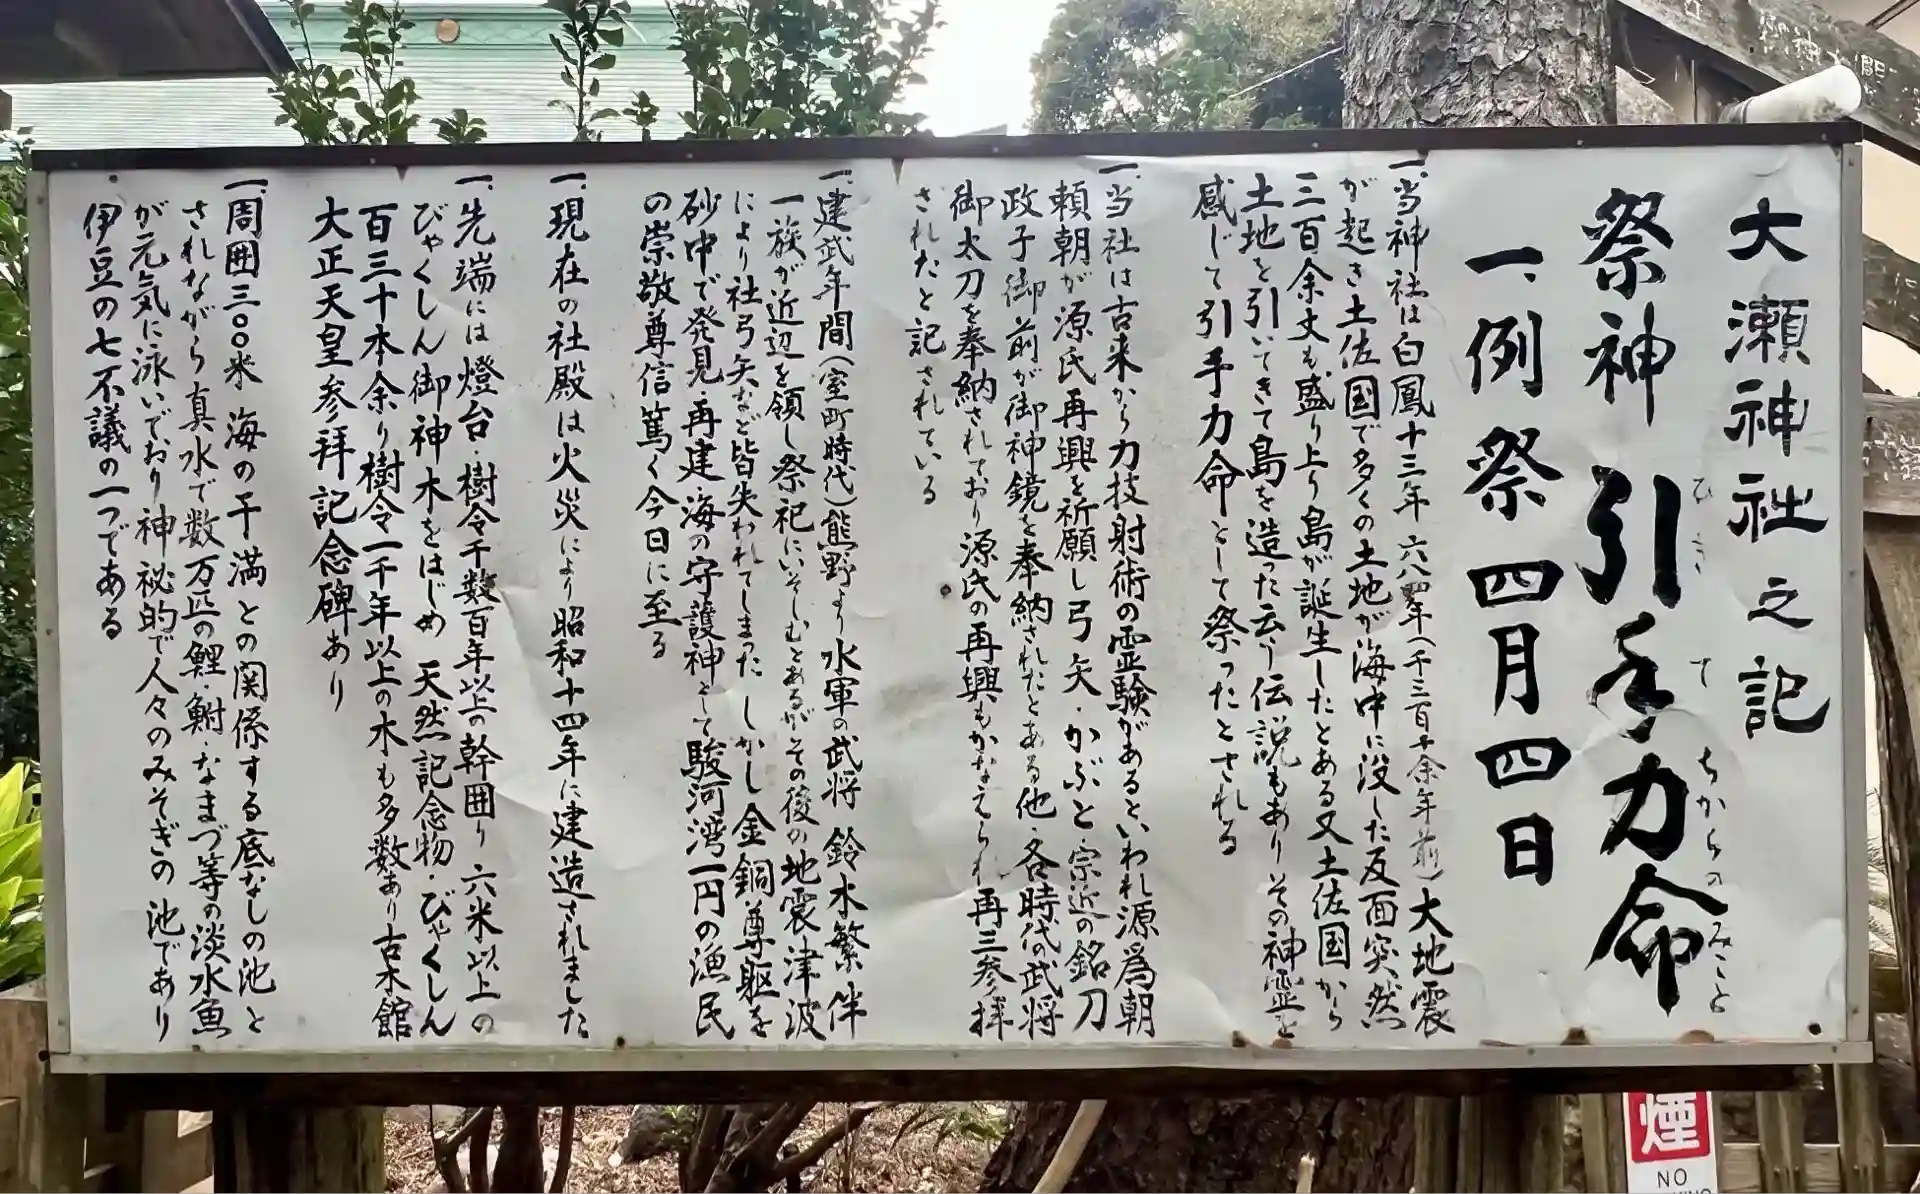 大瀬神社之記
祭神 引手力命
ひき て ちからの みこと
一、例祭 四月四日
一、当神社は白鳳十三年 六八四年(千三百余年前)大地震
が起き土佐国で多くの土地が海中に没した反面突然
三百余丈も盛り上り島が誕生したとある又土佐国から
土地を引いてきて島を造った云う伝説もありその神霊を
感じて引手力命として祭ったとされる
一、当社は古来から力技射術の霊験があるといわれ源為朝
頼朝が源氏再興を祈願し弓矢・かぶと・宗近の銘刀
政子御前が御神鏡を奉納されたとある他・各時代の武将
御太刀を奉納されており源氏の再興もかなえられ再三参拝
されたと記されている
一、建武年間(室町時代)熊野より水軍の武将 鈴木繁伴
一族が近辺を領し祭祀にいそしむとあるがその後の地震・津波
により社弓矢など皆失われてしまった しかし金銅尊躯を
砂中で発見・再建・海の守護神として駿河湾一円の漁民
の崇敬尊信篤く今日に至る
一、現在の社殿は火災により昭和十四年に建造されました
一、先端には燈台・樹令千数百年以上の幹囲り 六米以上の
びゃくしん御神木をはじめ 天然記念物・びゃくしん
百三十本余り樹令一千年以上の木も多数あり古木館
大正天皇参拝記念碑あり
一、周囲三〇〇米 海の干満との関係する底なしの池と
されながら真水で数万匹の鯉・鮒・なまづ等の淡水魚
が元気に泳いでおり神秘的で人々のみそぎの池であり
伊豆の七不議の一つである
煙
NO